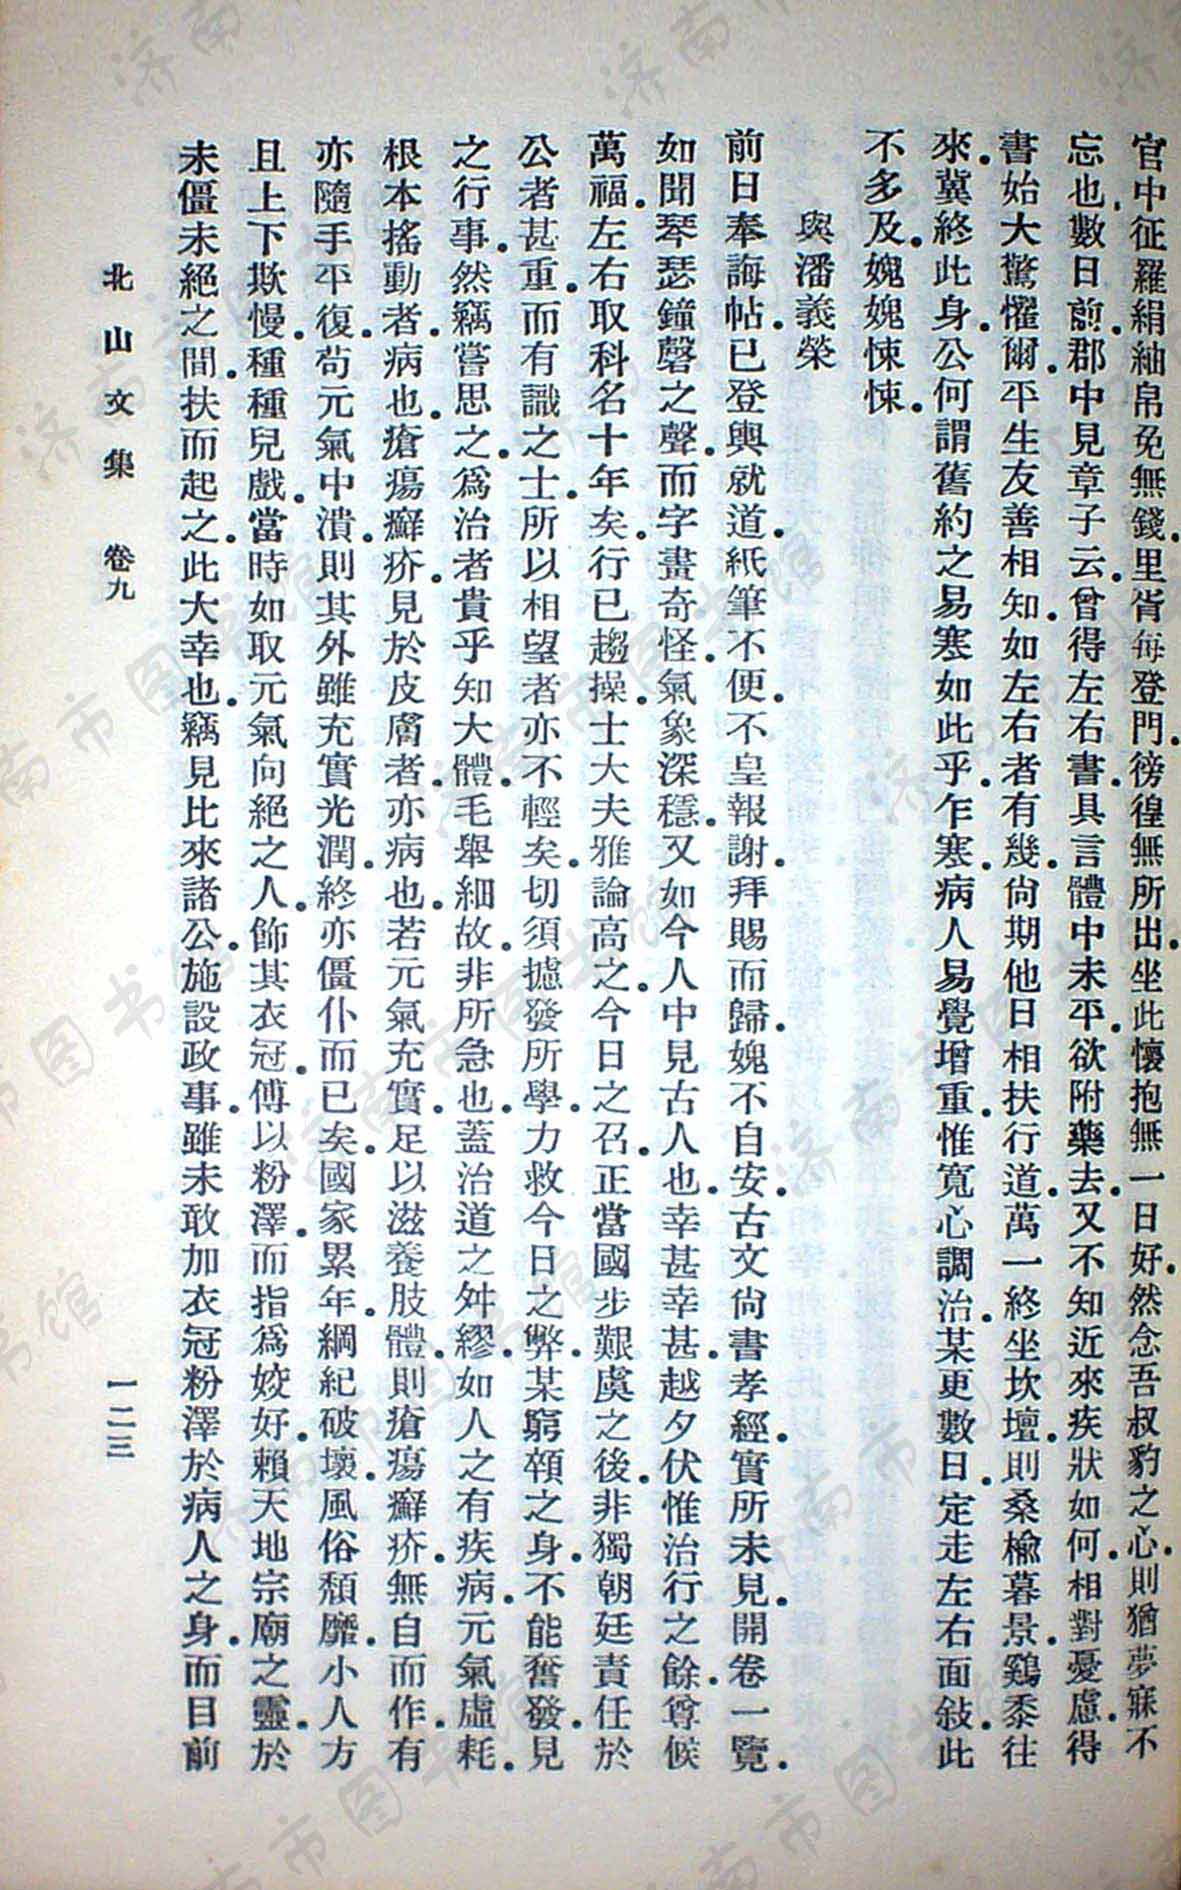 官中征羅絹紬帛免無錢．里胥每登門．徬徨無所出．坐此懷抱無一日好．然念吾叔豹之心．則猶夢寐不
忘也．數日前．郡中見章子云．曾得左右書．具言體中未平．欲附藥去．又不知近來疾狀如何．相對憂慮．得
書始大驚懼爾．平生友善相知．如左右者有幾．尙期他日相扶行道．萬一終坐坎壇．則桑楡暮景．鷄黍往
來．冀終此身．公何謂舊約之易寒如此乎．乍寒．病人易覺增重．惟寬心調治．某更數日．定走左右面敍．此
不多及．媿媿悚悚．
與潘義榮
前日奉誨帖．已登輿就道．紙筆不便．不皇報謝．拜賜而歸．媿不自安．古文尙書孝經．實所未見．開卷一覽．
如聞琴瑟鐘磬之聲．而字畫奇怪．氣象深穩．又如今人中見古人也．幸甚幸甚．越夕伏惟治行之餘．尊候
萬福．左右取科名十年矣．行已趨操．士大夫雅論高之．今日之召．正當國步艱虞之後．非獨朝廷責任於
公者甚重．而有識之士．所以相望者亦不輕矣．切須攄發所學．力救今日之弊．某窮顇之身．不能奮發．見
之行事．然竊嘗思之．爲治者貴乎知大體．毛舉細故．非所急也．蓋治道之舛繆．如人之有疾病．元氣虛耗．
根本搖動者．病也．瘡瘍癬疥．見於皮膚者．亦病也．若元氣充實．足以滋養肢體．則瘡瘍癬疥．無自而作．有
亦隨手平復．苟元氣中潰．則其外雖充實光潤．終亦僵仆而已矣．國家累年．綱紀破壞．風俗頹靡．小人方
且上下欺慢．種種兒戲．當時如取元氣向絕之人．飾其衣冠．傅以粉澤．而指爲姣好．賴天地宗廟之靈．於
未僵未絕之間．扶而起之．此大幸也．竊見比來諸公．施設政事．雖未敢加衣冠粉澤於病人之身．而目前
北山文集 卷九
一二三
济南市图书馆